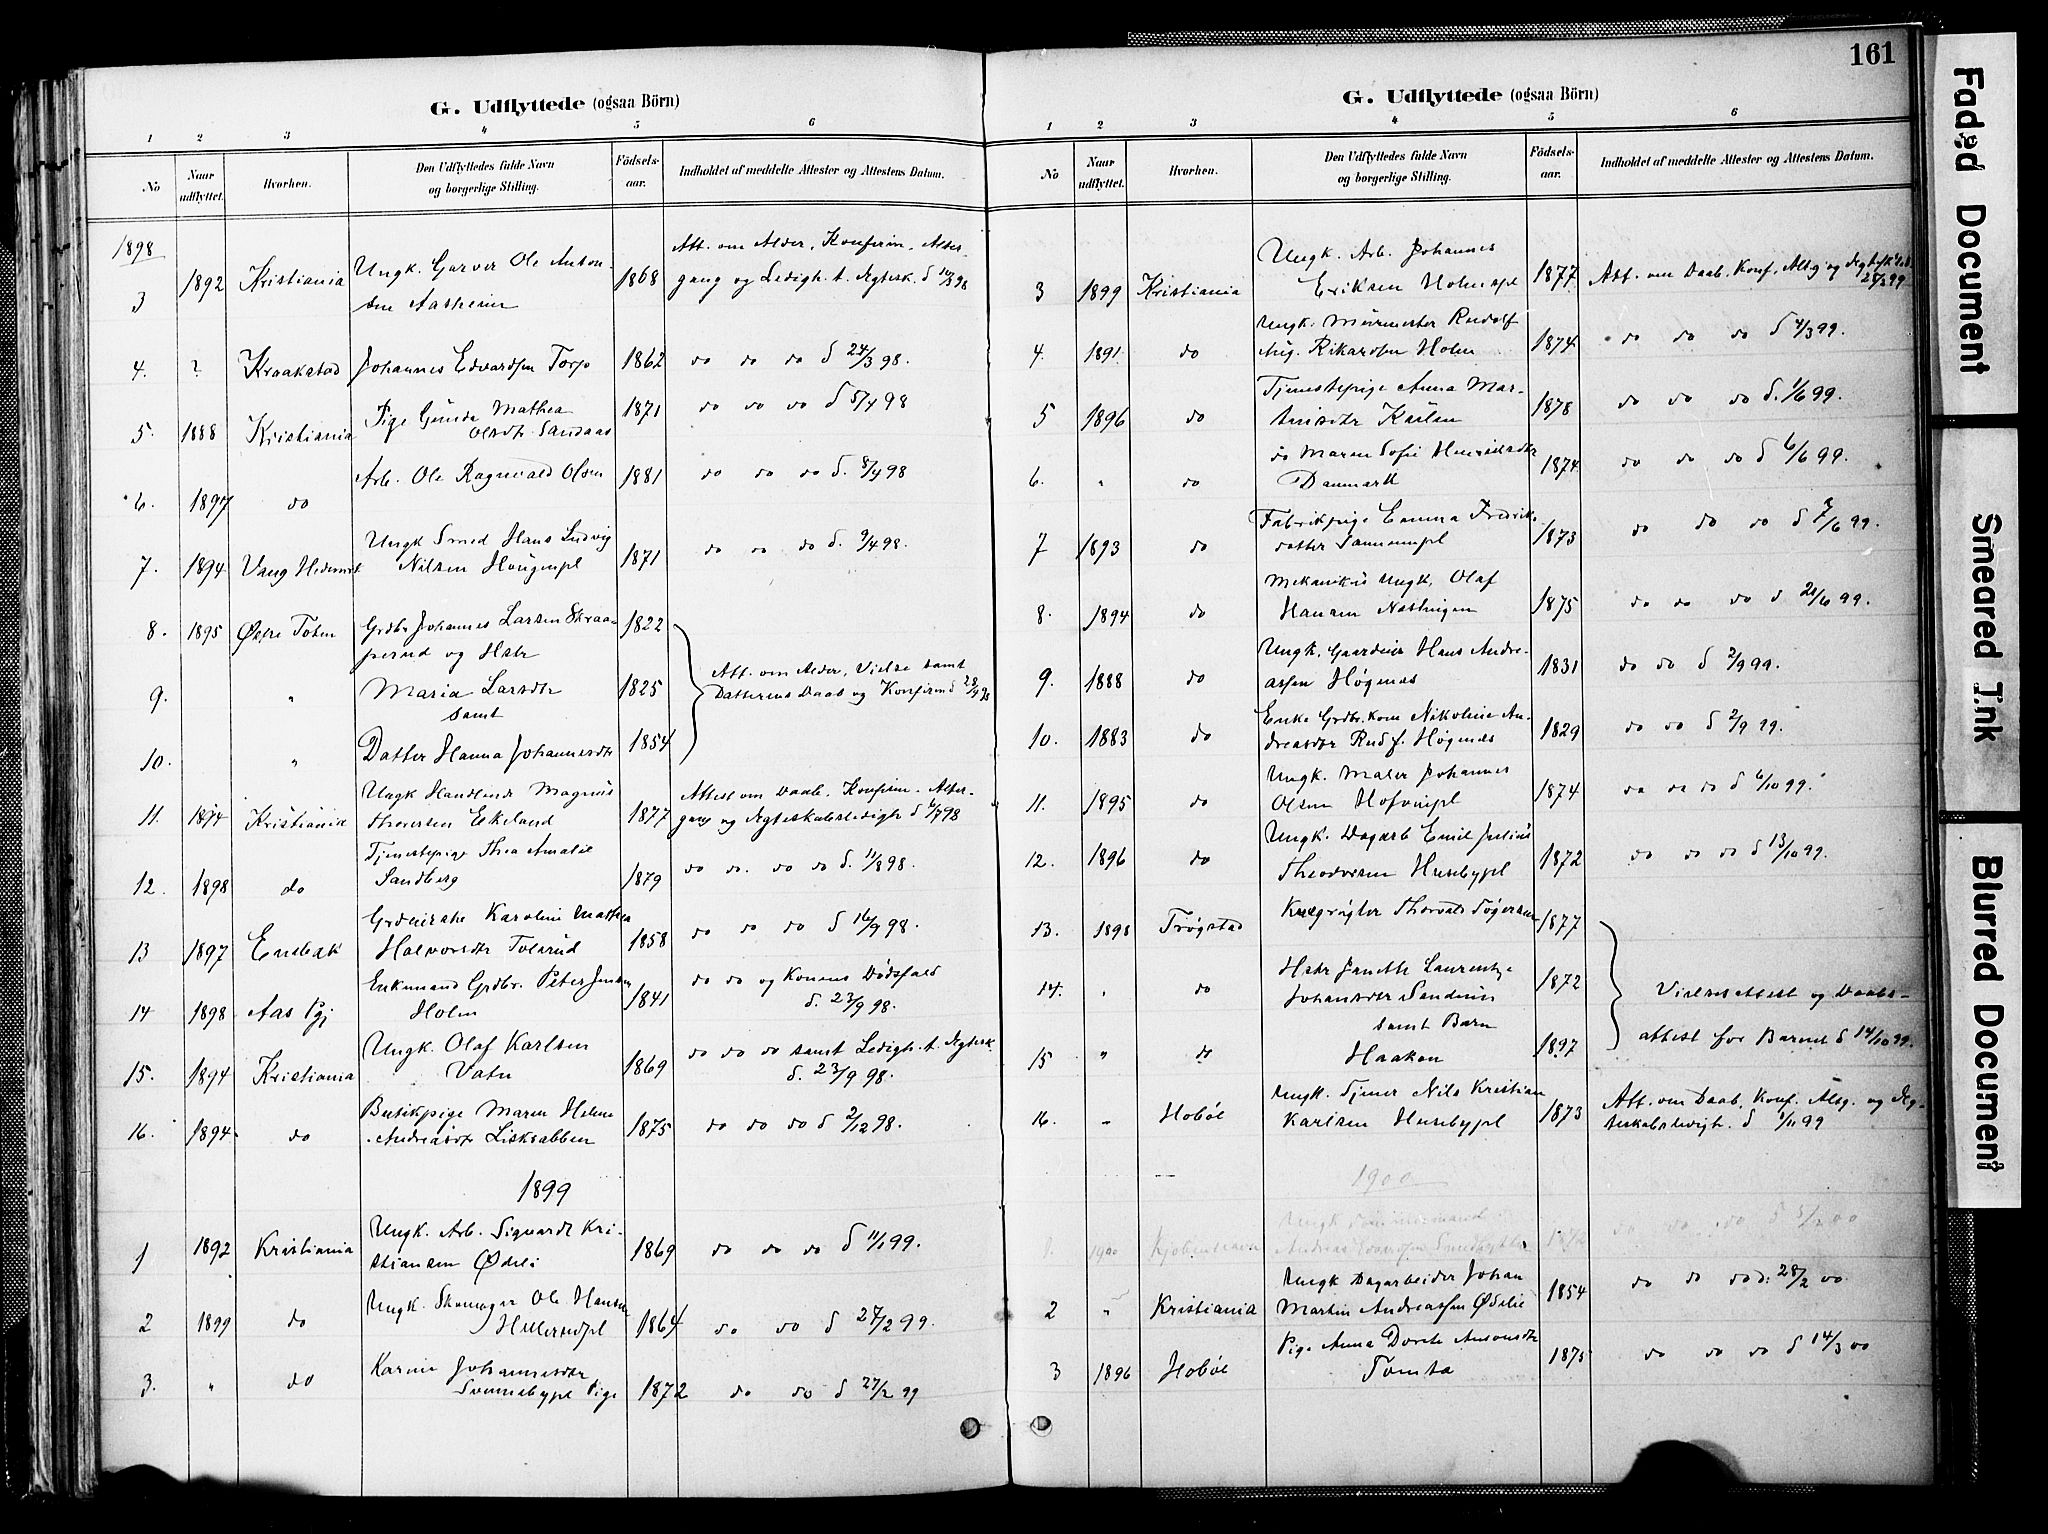 161
G. Udflyttede (ogsaa Börn)
1 2 3 4 5 6
No
Naar udflyttet.
Hvorhen.
Den Udflyttedes fulde Navn
og borgerlige Stilling.
Födsels-
aar.
Indholdet af meddelte Attester og Attestens Datum.
1898
3 1892 Kristiania Ungk. Garver Ole Anton- 1868 Att. om Alder, Konfirm. Alter-
sen Aasheim gang og Ledigh. t. Ægtesk. d
4. ? Kraakstad Johannes Edvardsen Torp 1862 do do do d 24/3 98.
5. 1888 Kristiania Pige Gunda Mathea 1871 do do do d 5/4 98
Olsdtr Sandaas
6. 1897 do Arb. Ole Ragnvald Olsen 1881 do do do d. 8/4 98
7. 1894 Vang Hedemark Ungk Smed Hans Ludvig 1871 do do do d. 9/4 98.
Nilsen Haugenpl
8. 1895 Østre Toten Grdbr Johannes Larsen Skraa- 1822
perud og Hstr
9. " Maria Larsdtr 1825 Att. om Alder, Vielse samt
samt Datterens Daab og Konfirm d 28/4 98
10. " Datter Hanna Johannesdtr 1854
11. 1894 Kristiania Ungk Handlende Magnus 1877 Attest om Daab, Konfirm. Alter-
Thoresen Ekeland gang og Ægteskabsledigh d 6/7 98
12. 1898 do Tjenestepige Thea Amalie 1879 do do. do do d. 11/8 98.
Sandberg
13 1897 Enebak Karoline Mathea 1858 do do do d 16/9 98.
Halvorsdtr Tolsrud
14 1898 Aas Pgj Enkemand Grdbr. Peter Jensen 1841 do do og Konens Dødsfald
Holm d. 23/9 98.
15. 1894 Kristiania Ungk. Olaf Karlsen 1869 do do do samt Ledigh. t. Ægtesk.
Vatn d. 23/9 98.
16. 1894 do Butikpige Maren Helene 1875 do do do d 2/12 98.
Andreasdtr Lisksabben
1899
1 1892 Kristiania Ungk. Arb. Sigvardt Kri- 1869 do do do d 11/1 99.
stiansen Ødeli
2 1899 do Ungk. Skomager Ole Hansen 1864 do do d 27/2 99.
Hellerudpl
3. " do Karine Johannesdtr 1872 do do d 27/2 99
Sonnebypl Pige
G. Udflyttede (ogsaa Börn)
1 2 3 4 5 6
No
Naar udflyttet.
Hvorhen.
Den Udflyttedes fulde Navn
og borgerlige Stilling.
Födsels-
aar.
Indholdet af meddelte Attester og Attestens Datum.
3 1899 Kristiania Ungk. Arb. Johannes 1877 Att. om Daab, Konf. Altg og
Eriksen Holmspl
4. 1891. do Ungk. Murmester Rudolf 1874 do do do d 4/3 99.
Aug. Rikardsen Holm
5 1896 do Tjenestepige Anna Mar- 1878 do do do d. 1/6 99.
tinsdtr
6. " do do Maren Sofie Henriksdtr 1874 do do do d 6/6 99.
Danmark
7 1893 do Fabrikpige Emma Fredriks- 1873 do do do d 7/6 99.
datter
8. 1894 do Mekanikus Ungk. Olaf 1875 do do do d 21/6 99.
Hansen
9. 1888 do Ungk. Gaardeier Hans Andre- 1831 do do d 2/9 99.
assen Høgenæs
10. 1883 do Enke Grdbr. kone Nikoline An- 1829 do do d 2/9 99.
dreasdtr Rud f. Høgenæs
11. 1895 do Ungk. Maler Johannes 1874 do do do d 6/10 99.
Olsen
12. 1896 do Ungk. Dagarb Emil Julius 1872 do do do d 13/10 99.
Theodorsen Husebypl
13. 1898 Trøgstad Thorvald 1877
14. " do Hstr Janethe Laurentze 1872 Vielsesattest og Daabs-
Johansdtr
samt Barn
15 " do Haakon 1897 attest for Barnet d 14/10 99.
16. " Hobøl Ungk. Tjener Nils Kristian 1873 Att. om Daab, Konf. Altg. og Æg-
Karlsen Husebypl teskabsledigh. d 1/11 99
1900
1. 1900 Kjøbenhavn Ungk do do do d 3/2 00
Andreas
2 " Kristiania Ungk Dagarbeider Johan 1854 do do do d: 28/2 00.
Martin Andreassen Ødelie
3 1896 Hobøl Pige Anna Dorete Antonsdtr 1875 do do do d 14/3 00
Tomta
Faded Document
Smeared Ink
Blurred Document